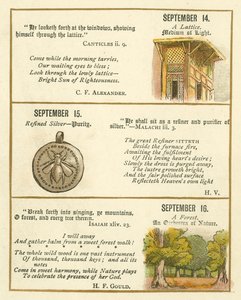 "He looketh forth at the windows, shewing
himself through the lattice."
CANTICLES ii. 9.
Come while the morning tarries,
Our waiting eyes to bless;
Look through the lowly lattice—
Bright Sun of Righteousness.
C. F. ALEXANDER.
SEPTEMBER 14.
A Lattice.
Medium of Light.
SEPTEMBER 15.
Refined Silver—Purity.
"He shall sit as a refiner and purifier
of silver."—MALACHI iii. 3.
The great Refiner SITTETH
Beside the furnace fire,
Awaiting the fulfilment
Of His loving heart's desire;
Slowly the dross is purged away,
The lustre groweth bright,
And the fair polished surface
Reflecteth Heaven's own light
H. V.
"Break forth into singing, ye mountains,
O forest, and every tree therein."
ISAIAH xliv. 23.
I will away
And gather balm from a sweet forest walk!
The whole wild wood is one vast instrument
Of thousand, thousand keys; and all its
notes
Come in sweet harmony, while Nature plays
To celebrate the presence of her God.
H. F. GOULD.
SEPTEMBER 16.
A Forest.
An Orchestra of Nature.